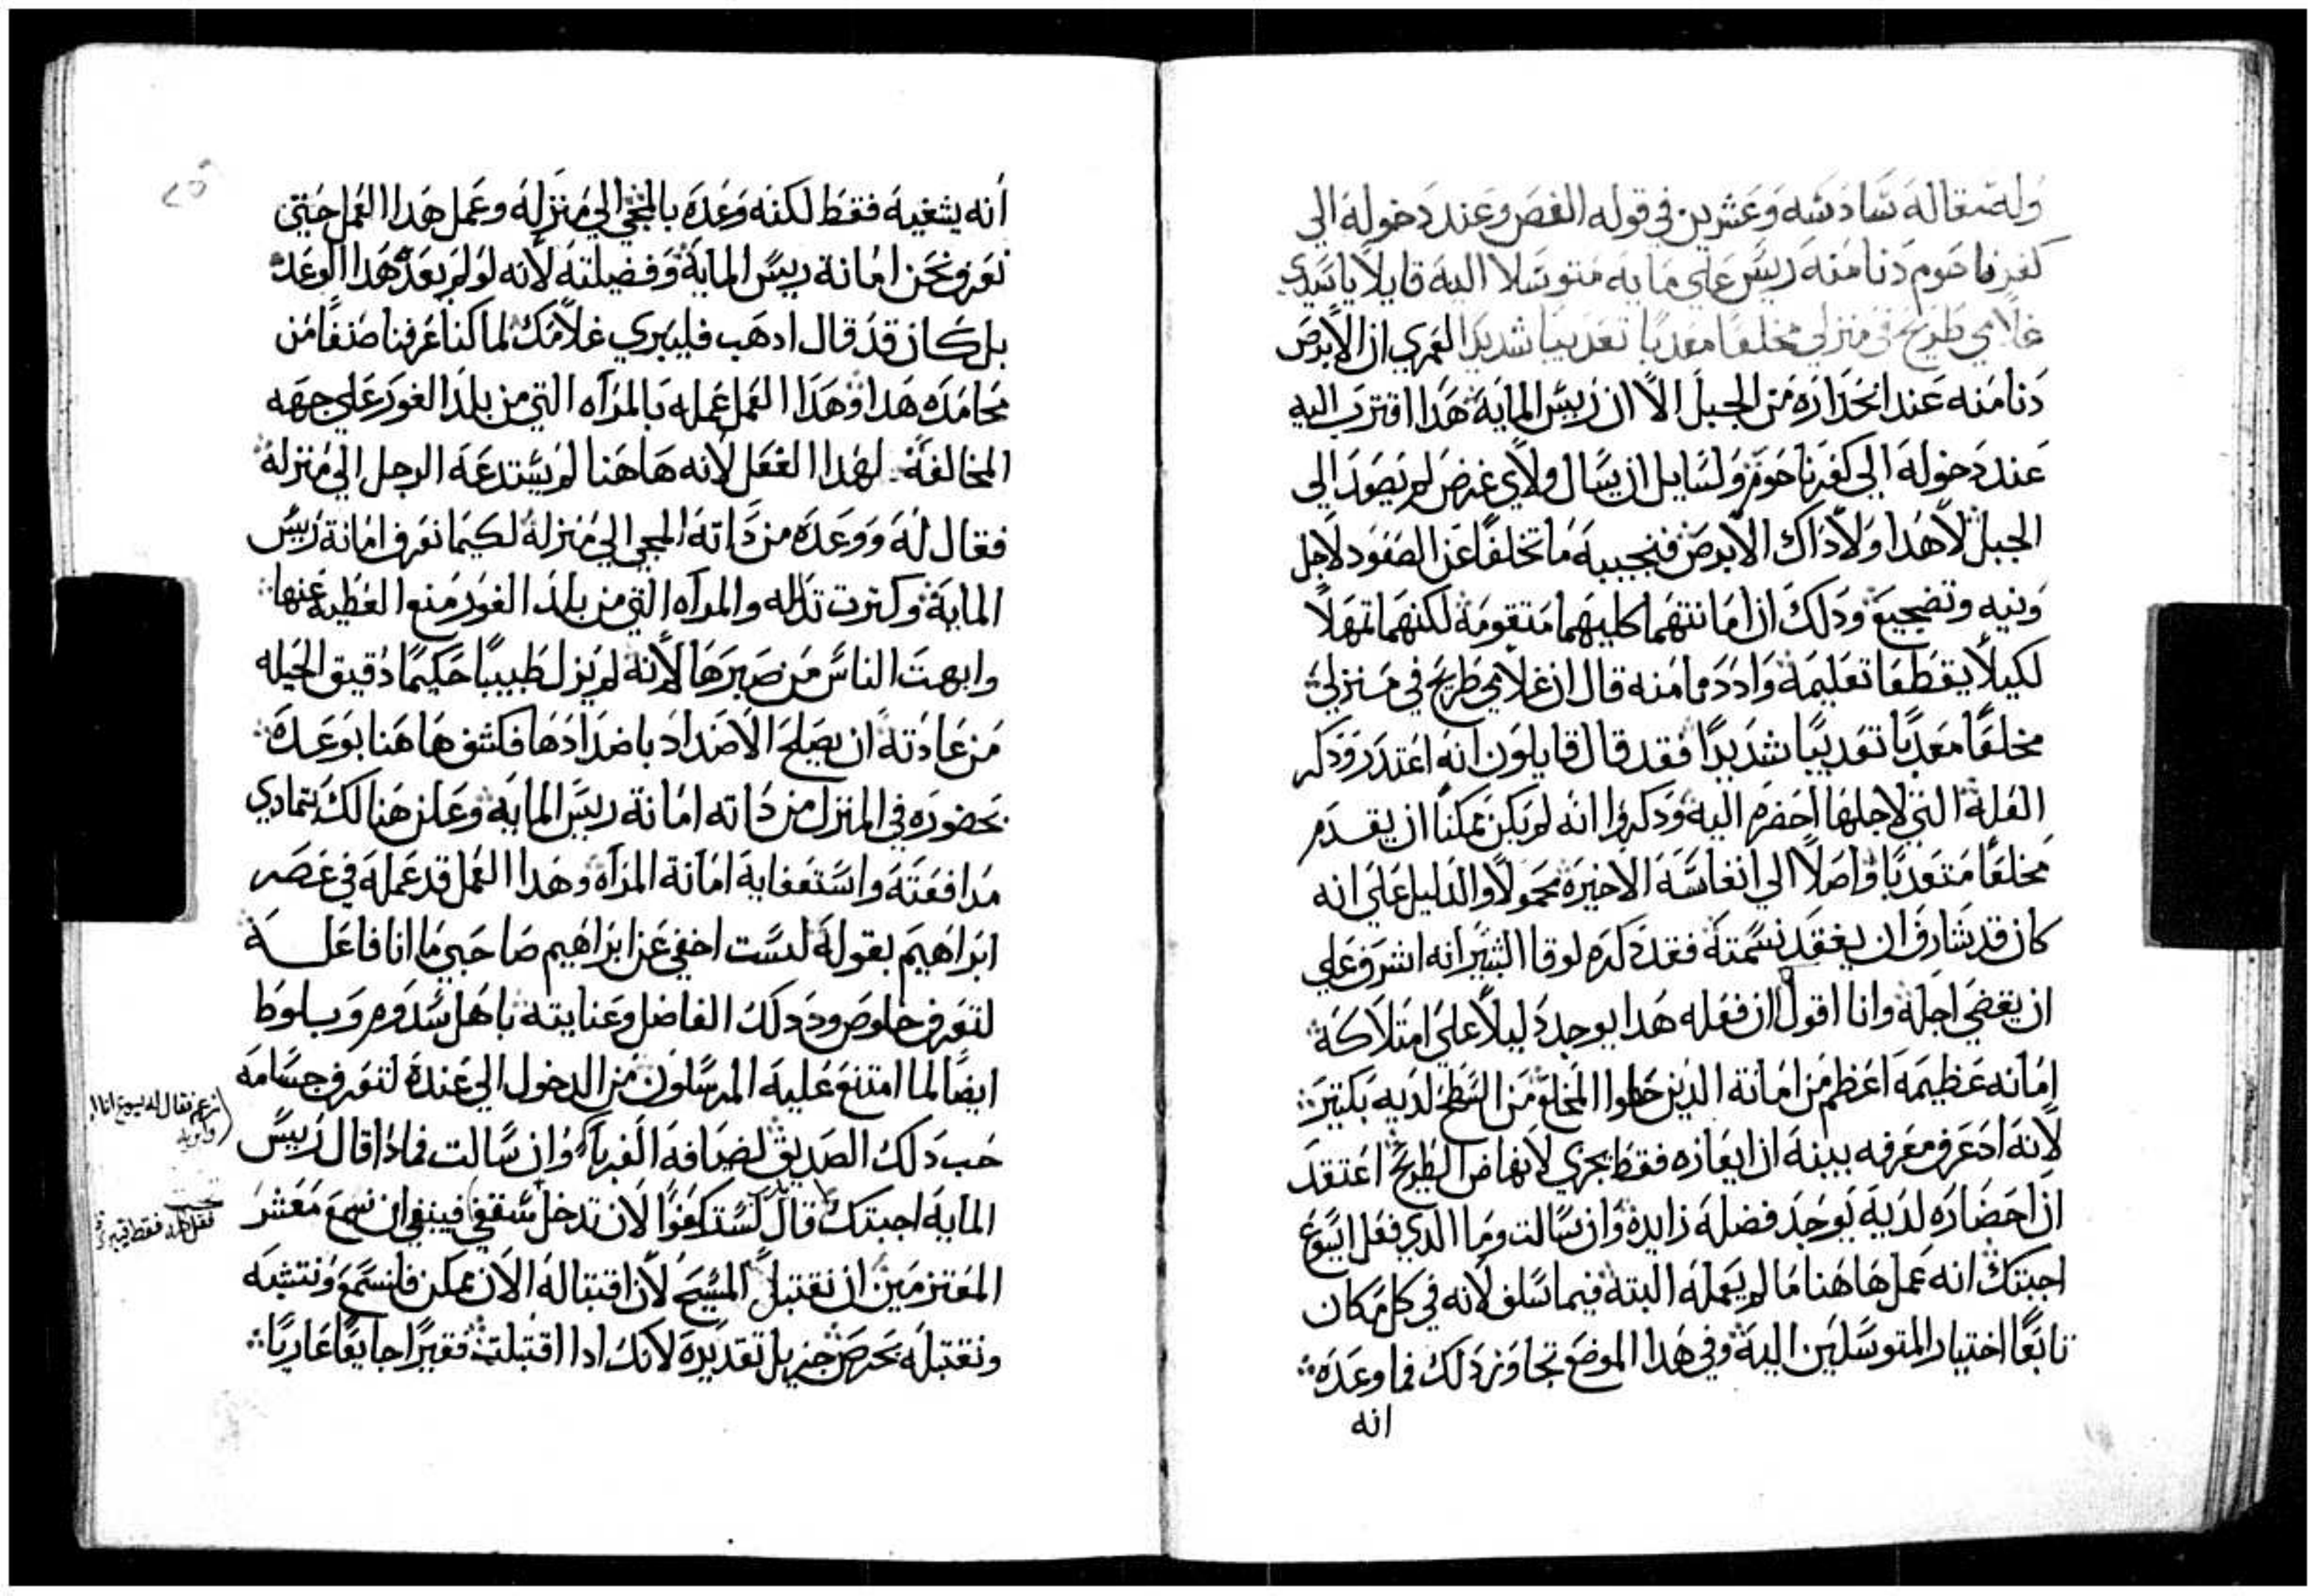 وله مقاله سادسه وعشرين في قوله الفص وعند دخوله الي
كفرناحوم دنا منه ريس علي مايه متوسلا اليه قايلا يا سيدي
غلامي طريح في منزلي مخلعا معدبا تعديبا شديدا لعمري ان الابرص
دنا منه عند انحداره من الجبل الا ان ريس المايه هدا اقترب اليه
عند دخوله الي كفرناحوم ولسايل ان يسال ولاي غرض لم يصعد الي
الجبل لا هدا ولا داك الابرص فنجيبه ما تخلفا عن الصعود لاجل
ونيه وتضجيع ودلك ان امانتهما كليهما متقومه لكنهما تمهلا
لكيلا يقطعا تعليمه وادد ما منه قال ان غلامي طريح في منزلي
مخلعا معدبا تعديبا شديدا فقد قال قايلون انه اعتدر ودكر
العله التي لاجلها احضره اليه ودكروا انه لم يكن ممكنا ان يقدم
مخلعا متعدبا واصلا الي انفاسه الاخيره محمولا والدليل علي انه
كان قد شارف ان يفقد نسمته فقد دكره لوقا البشير انه اشرف علي
ان يقضي اجله وانا اقول ان فعله هدا يوجد دليلا علي امتلاكه
امانه عظيمه اعظم من امانة الدين حطوا المخلع من السطح لديه بكتير
لانه اد عرف معرفه بينه ان ايعازه فقط يجزي لانهاض الطريح اعتقد
ان احضاره لديه يوجد فضله زايده وان سالت وما الدي فعل ايسوع
اجبتك انه عمل هاهنا ما لم يعمله البته فيما سلف لانه في كل مكان
تابعا اختيار المتوسلين اليه وفي هدا الموضع تجاوز دلك فما وعده
انه
انه يشفيه فقط لكنه وعده بالمجي الي منزله وعمل هدا العمل حتي
نعرف نحن امانة ريس المايه وفضيلته لانه لو لم يعد هدا الوعد
بل كان قد قال ادهب فليبري غلامك لما كنا عرفنا صنفا من
محامده هدا وهدا العمل عمله بالمراه التي من بلد الغور علي جهه
المخالفه لهدا الفعل لانه هاهنا لم يستدعه الرجل الي منزله
فقال له ووعده من داته المجي الي منزله لكيما نعرف امانة ريس
المايه وكترت تدلله والمراه التي من بلد الغور منع العطيه عنها
وابهت الناس من صبرها لانه لم يزل طبيبا حكيما دقيق الحيله
من عادته ان يصلح الاضداد باضدادها فكشف هاهنا بوعده
بحضوره في المنزل من داته امانة ريس المايه وعلن هنالك بتمادي
مدافعته واستعفايه امانة المراه وهدا العمل قد عمله في عصر
ابراهيم بقوله لست اخفي عن ابراهيم صاحبي ما انا فاعله
لتعرف خلوص ود دلك الفاضل وعنايته باهل سدوم وبلوط
ايضا لما امتنع عليه المرسلون من الدخول الي عنده لتعرف جسامه
حب دلك الصديق لضيافه الغربا وان سالت فمادا قال ريس
المايه اجبتك قال لست كفوا لان تدخل سقفي فينبغي ان نسمع معشر
المعتزمين ان نقتبل المسيح لان اقتباله الان ممكن فلنسمع ونتشبه
ونقتبله بحرص جزيل تقديره لانك ادا اقتبلت فقيرا جايعا عاريا